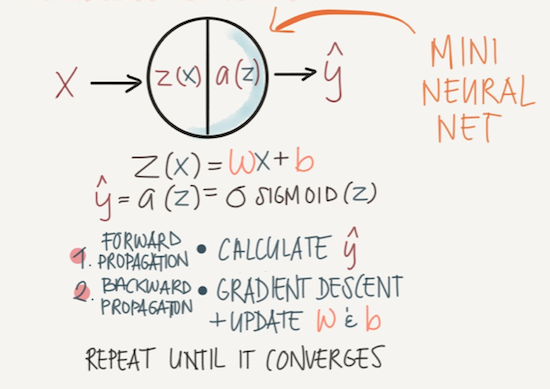 X → z(x) | a(z) → ŷ
MINI
NEURAL
NET
Z(X) = WX + b
ŷ = a(z) = σ SIGMOID(z)
1. FORWARD PROPAGATION • CALCULATE ŷ
2. BACKWARD PROPAGATION • GRADIENT DESCENT
+ UPDATE W & b
REPEAT UNTIL IT CONVERGES